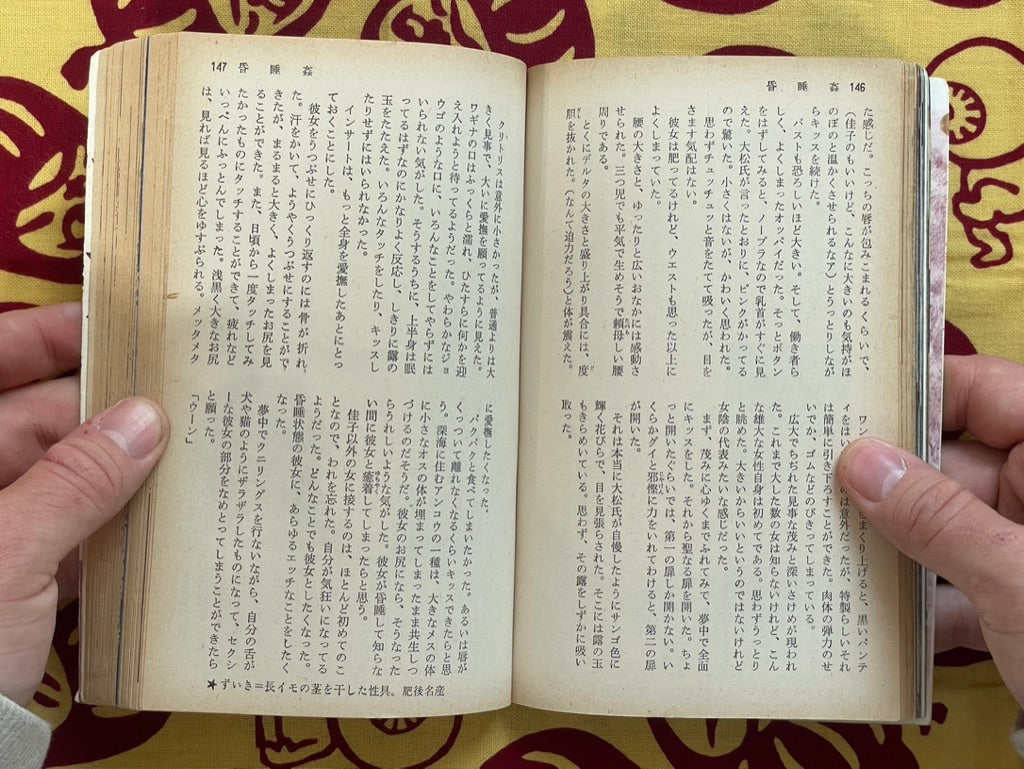 昏睡姦 146
た感じだ。こっちの唇が包みこまれるくらいで、
（佳子のもいいけど、こんなに大きいのも気持がほ
のぼのと温かくさせられるなァ）とうっとりしなが
らキッスを続けた。
バストも恐ろしいほど大きい。そして、働き者ら
しく、よくしまったオッパイだった。そっとボタン
をはずしてみると、ノーブラなので乳首がすぐに見
えた。大松氏が言ったとおりに、ピンクがかってる
ので驚いた。小さくはないが、かわいく思われた。
思わずチュッチュッと音をたてて吸ったが、目を
さます気配はない。
彼女は肥ってるけれど、ウエストも思った以上に
よくしまっていた。
腰の大きさと、ゆったりと広いおなかには感動さ
せられた。三つ児でも平気で生めそうで頼母しい腰
周りである。
とくにデルタの大きさと盛り上がり具合には、度
胆を抜かれた。（なんて迫力だろう）と体が震えた。
まくり上げると、黒いパンテ
ィをは
のは意外だったが、特製らしいそれ
は簡単に引き下ろすことができた。肉体の弾力のせ
いでか、ゴムなどのびきってしまっている。
広大でちぢれた見事な茂みと深いさけめが現われ
た。これまで大した数の女は知らないけれど、こん
な雄大な女性自身は初めてである。思わずうっとり
と眺めた。大きいからいいというのではないけれど
女陰の代表みたいな感じだった。
まず、茂みに心ゆくまでふれてみて、夢中で全面
にキッスをした。それから聖なる扉を開いた。ちょ
っと開いたぐらいでは、第一の扉しか開かない。い
くらかグイと邪慳に力をいれてわけると、第二の扉
が開いた。
それは本当に大松氏が自慢したようにサンゴ色に
輝く花びらで、目を見張らされた。そこには露の玉
もきらめいている。思わず、その露をしずかに吸い
取った。
147 昏睡姦
クリトリスは意外に小さかったが、普通よりは大
きく見事で、大いに愛撫を願ってるように見えた。
ワギナの口はふっくらと濡れ、ひたすらに何かを迎
え入れようと待ってるようだった。やわらかなジョ
ウゴのような口に、いろんなことをしてやらずには
いられない気がした。そうするうちに、上半身は眠
ってるはずなのにかなりよく反応し、しきりに露の
玉をたたえた。いろんなタッチをしたり、キッスし
たりせずにはいられなかった。
インサートは、もっと全身を愛撫したあとにとっ
ておくことにした。
彼女をうつぶせにひっくり返すのには骨が折れ
た。汗をかいて、ようやくうつぶせにすることがで
きたが、まるまると大きく、よくしまったお尻を見
ることができた。また、日頃から一度タッチしてみ
たかったものにタッチすることができて、疲れなど
いっぺんにふっとんでしまった。浅黒く大きなお尻
は、見れば見るほど心をゆすぶられる。メッタメタ
に愛撫したくなった。
パクパクと食べてしまいたかった。あるいは唇が
くっついて離れなくなるくらいキッスできたらと思
う。深海に住むアンコウの一種は、大きなメスの体
に小さなオスの体が埋まってしまったまま共生しつ
づけるのだそうだ。彼女のお尻になら、そうなった
らうれしいような気がした。彼女が昏睡して知らな
い間に彼女と癒着してしまったらと思う。
佳子以外の女に接するのは、ほとんど初めてのこ
となので、われを忘れた。自分が気狂いになってる
ようだった。どんなことでも彼女としたくなった。
昏睡状態の彼女に、あらゆるエッチなことをしたく
なった。
夢中でクニリングスを行ないながら、自分の舌が
犬や猫のようにザラザラしたものになって、セクシ
ーな彼女の部分をなめとってしまうことができたら
と願った。
「ウーン」
★ずいき＝長イモの茎を干した性具。肥後名産